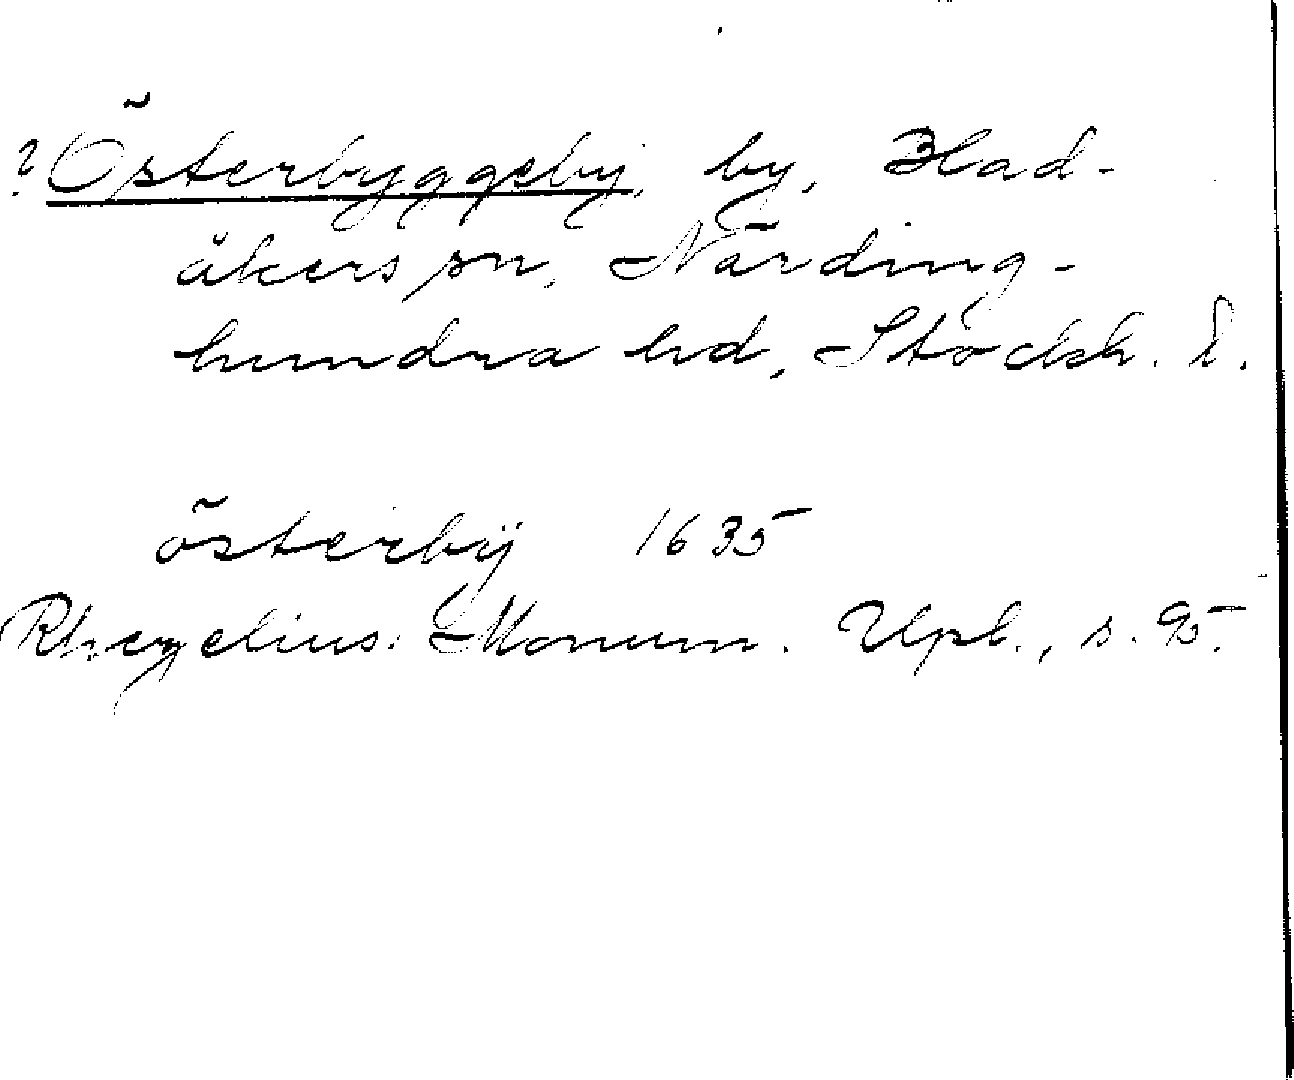 ? Österbyggeby, by, Blad-
åkers sn, Närding-
hundra hd, Stockh. l.
österbÿ 1635
Rhezelius: Monum. Upl., s. 95.